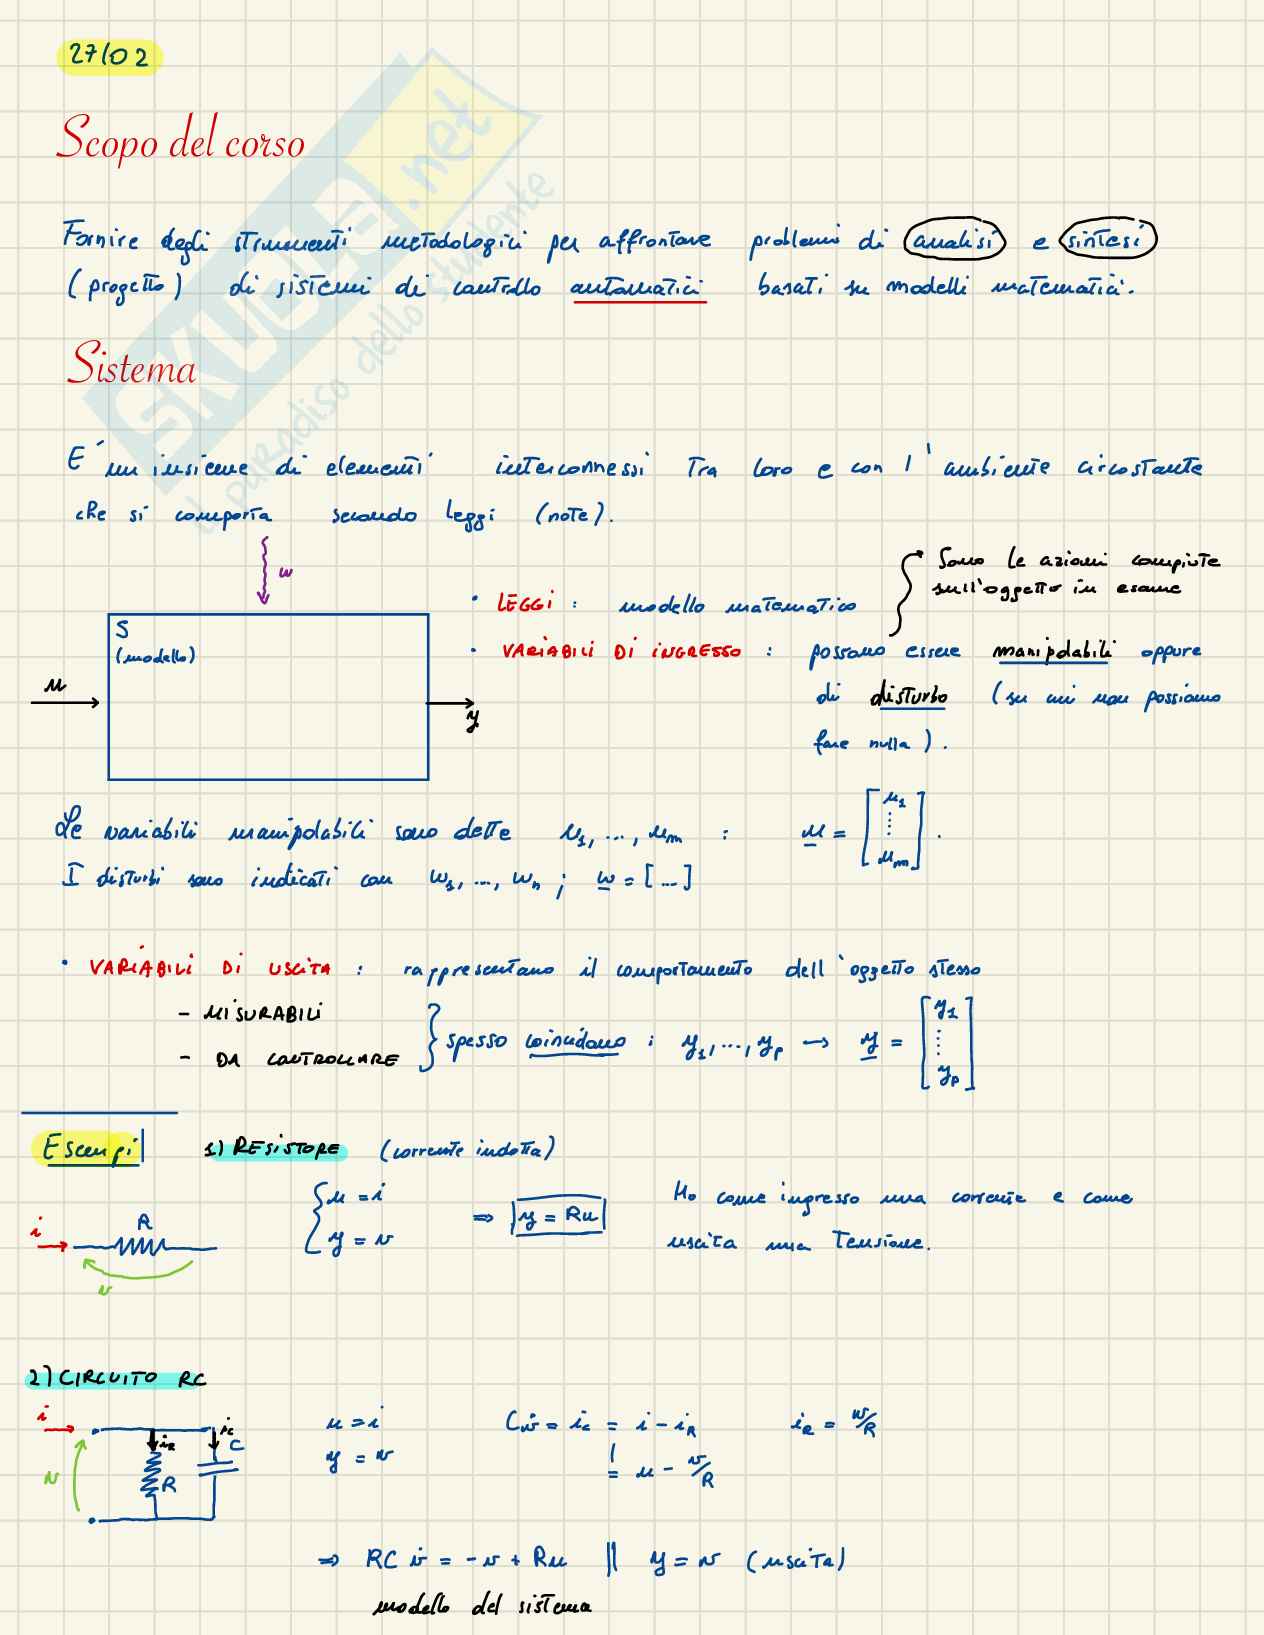 27/02
Scopo del corso
Fornire degli strumenti metodologici per affrontare problemi di analisi e sintesi
(progetto) di sistemi di controllo automatici basati su modelli matematici.
Sistema
E' un insieme di elementi interconnessi tra loro e con l'ambiente circostante
che si comporta secondo leggi (note).
w
S
(modello)
u
y
• LEGGI : modello matematico
Sono le azioni compiute
sull'oggetto in esame
• VARIABILI DI INGRESSO : possono essere manipolabili oppure
di disturbo (su cui non possiamo
fare nulla).
Le variabili manipolabili sono dette u₁, ..., uₘ : u = [u₁ ⋮ uₘ].
I disturbi sono indicati con w₁, ..., wₙ ; w = [...]
• VARIABILI DI USCITA : rappresentano il comportamento dell'oggetto stesso
- MISURABILI
- DA CONTROLLARE
} spesso coincidono : y₁, ..., yₚ → y = [y₁ ⋮ yₚ]
Esempi 1) RESISTORE (corrente indotta)
i R v
{ u = i
y = v
⇒ y = Ru
Ho come ingresso una corrente e come
uscita una tensione.
2) CIRCUITO RC
i v i_R R i_c C
u = i
y = v
Cv̇ = i_c = i - i_R i_R = v/R
= u - v/R
⇒ RC v̇ = -v + Ru || y = v (uscita)
modello del sistema
SKUOLA.net
il paradiso dello studente